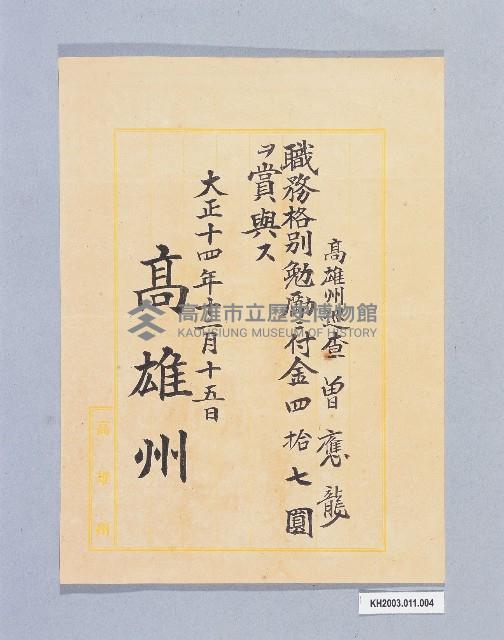 高雄州巡查 曾應龍
職務格別勉勵ニ付金四拾七圓
ヲ賞與ス
大正十四年十二月十五日
高雄州
高雄州
高雄市立歷史博物館
KAOHSIUNG MUSEUM OF HISTORY
KH2003.011.004